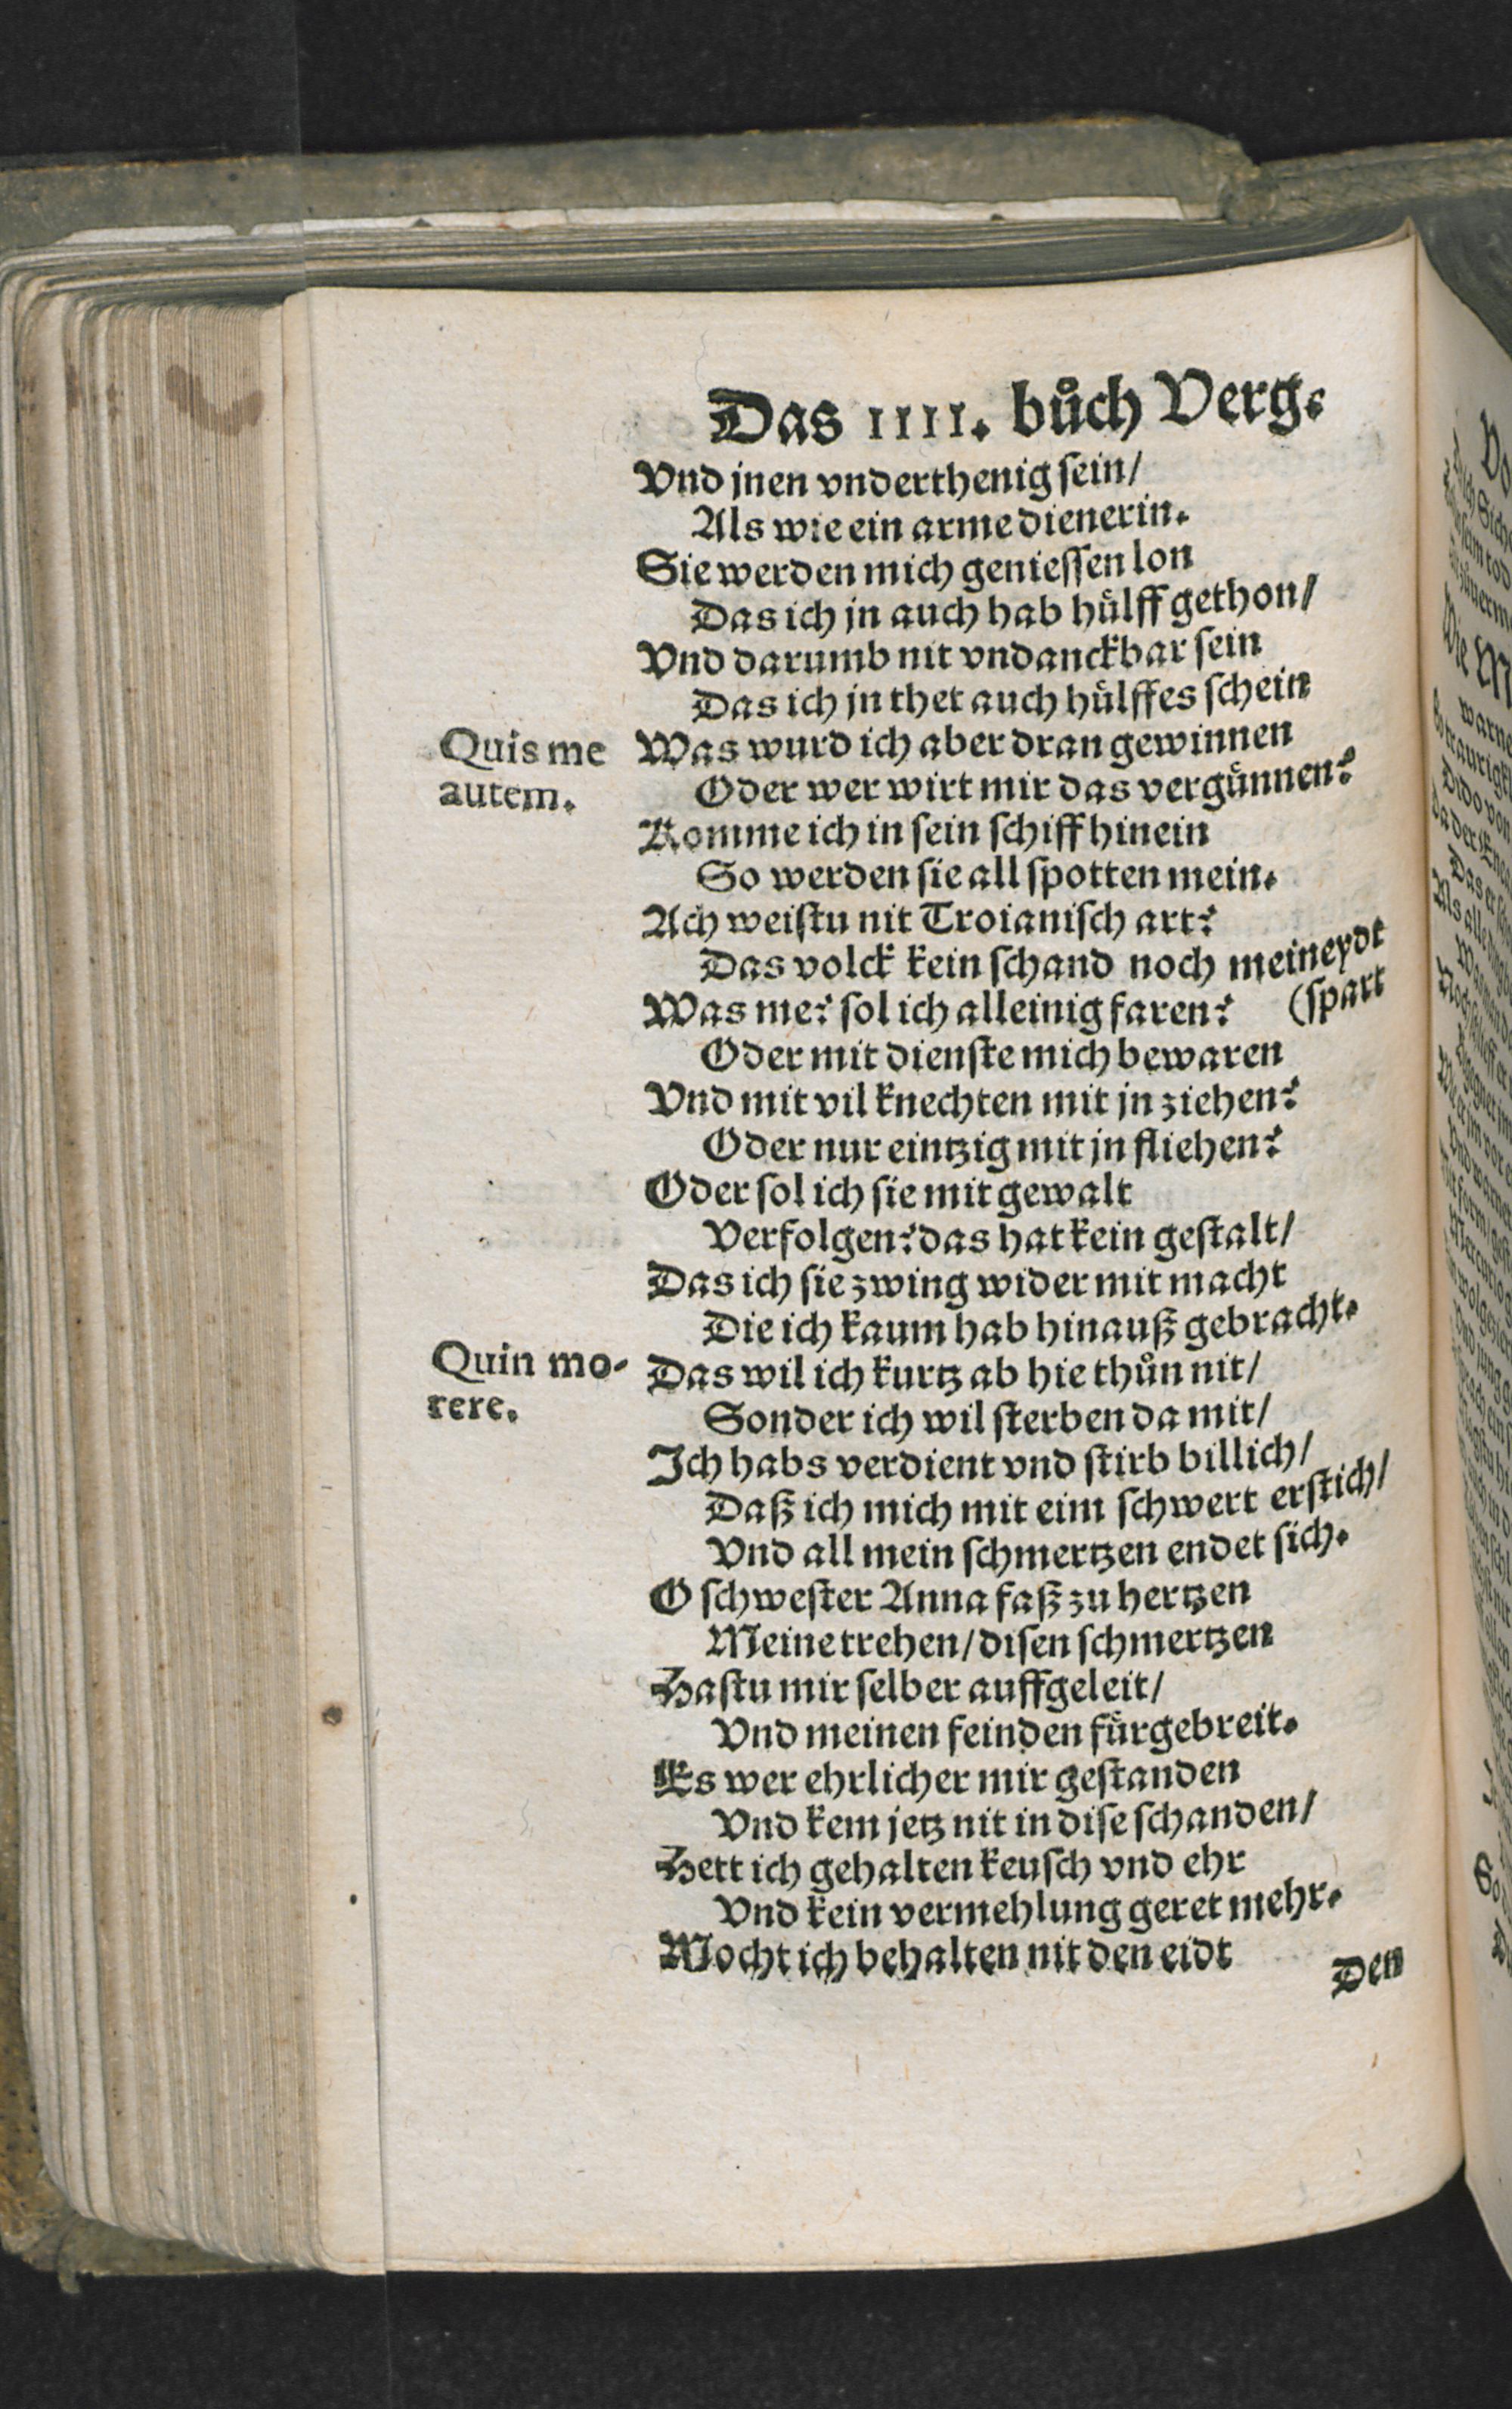 Das IIII. bůch Verg.
Vnd jnen vnderthenig sein/
Als wie ein arme dienerin.
Sie werden mich geniessen lon
Das ich jn auch hab hülff gethon/
Vnd darumb nit vndanckbar sein
Das ich jn thet auch hülffes schein
Quis me
autem.
Was wurd ich aber dran gewinnen
Oder wer wirt mir das vergünnen?
Komme ich in sein schiff hinein
So werden sie all spotten mein.
Ach weistu nit Troianisch art?
Das volck kein schand noch meineydt
(spart
Was me? sol ich alleinig faren?
Oder mit dienste mich bewaren
Vnd mit vil knechten mit jn ziehen?
Oder nur eintzig mit jn fliehen?
Oder sol ich sie mit gewalt
Verfolgen? das hat kein gestalt/
Das ich sie zwing wider mit macht
Die ich kaum hab hinauß gebracht.
Quin mo-
rere.
Das wil ich kurtz ab hie thůn nit/
Sonder ich wil sterben da mit/
Ich habs verdient vnd stirb billich/
Daß ich mich mit eim schwert erstich/
Vnd all mein schmertzen endet sich.
O schwester Anna faß zu hertzen
Meine trehen/ disen schmertzen
Hastu mir selber auffgeleit/
Vnd meinen feinden fürgebreit.
Es wer ehrlicher mir gestanden
Vnd kem jetz nit in dise schanden/
Hett ich gehalten keusch vnd ehr
Vnd kein vermehlung geret mehr.
Mocht ich behalten nit den eidt
Den